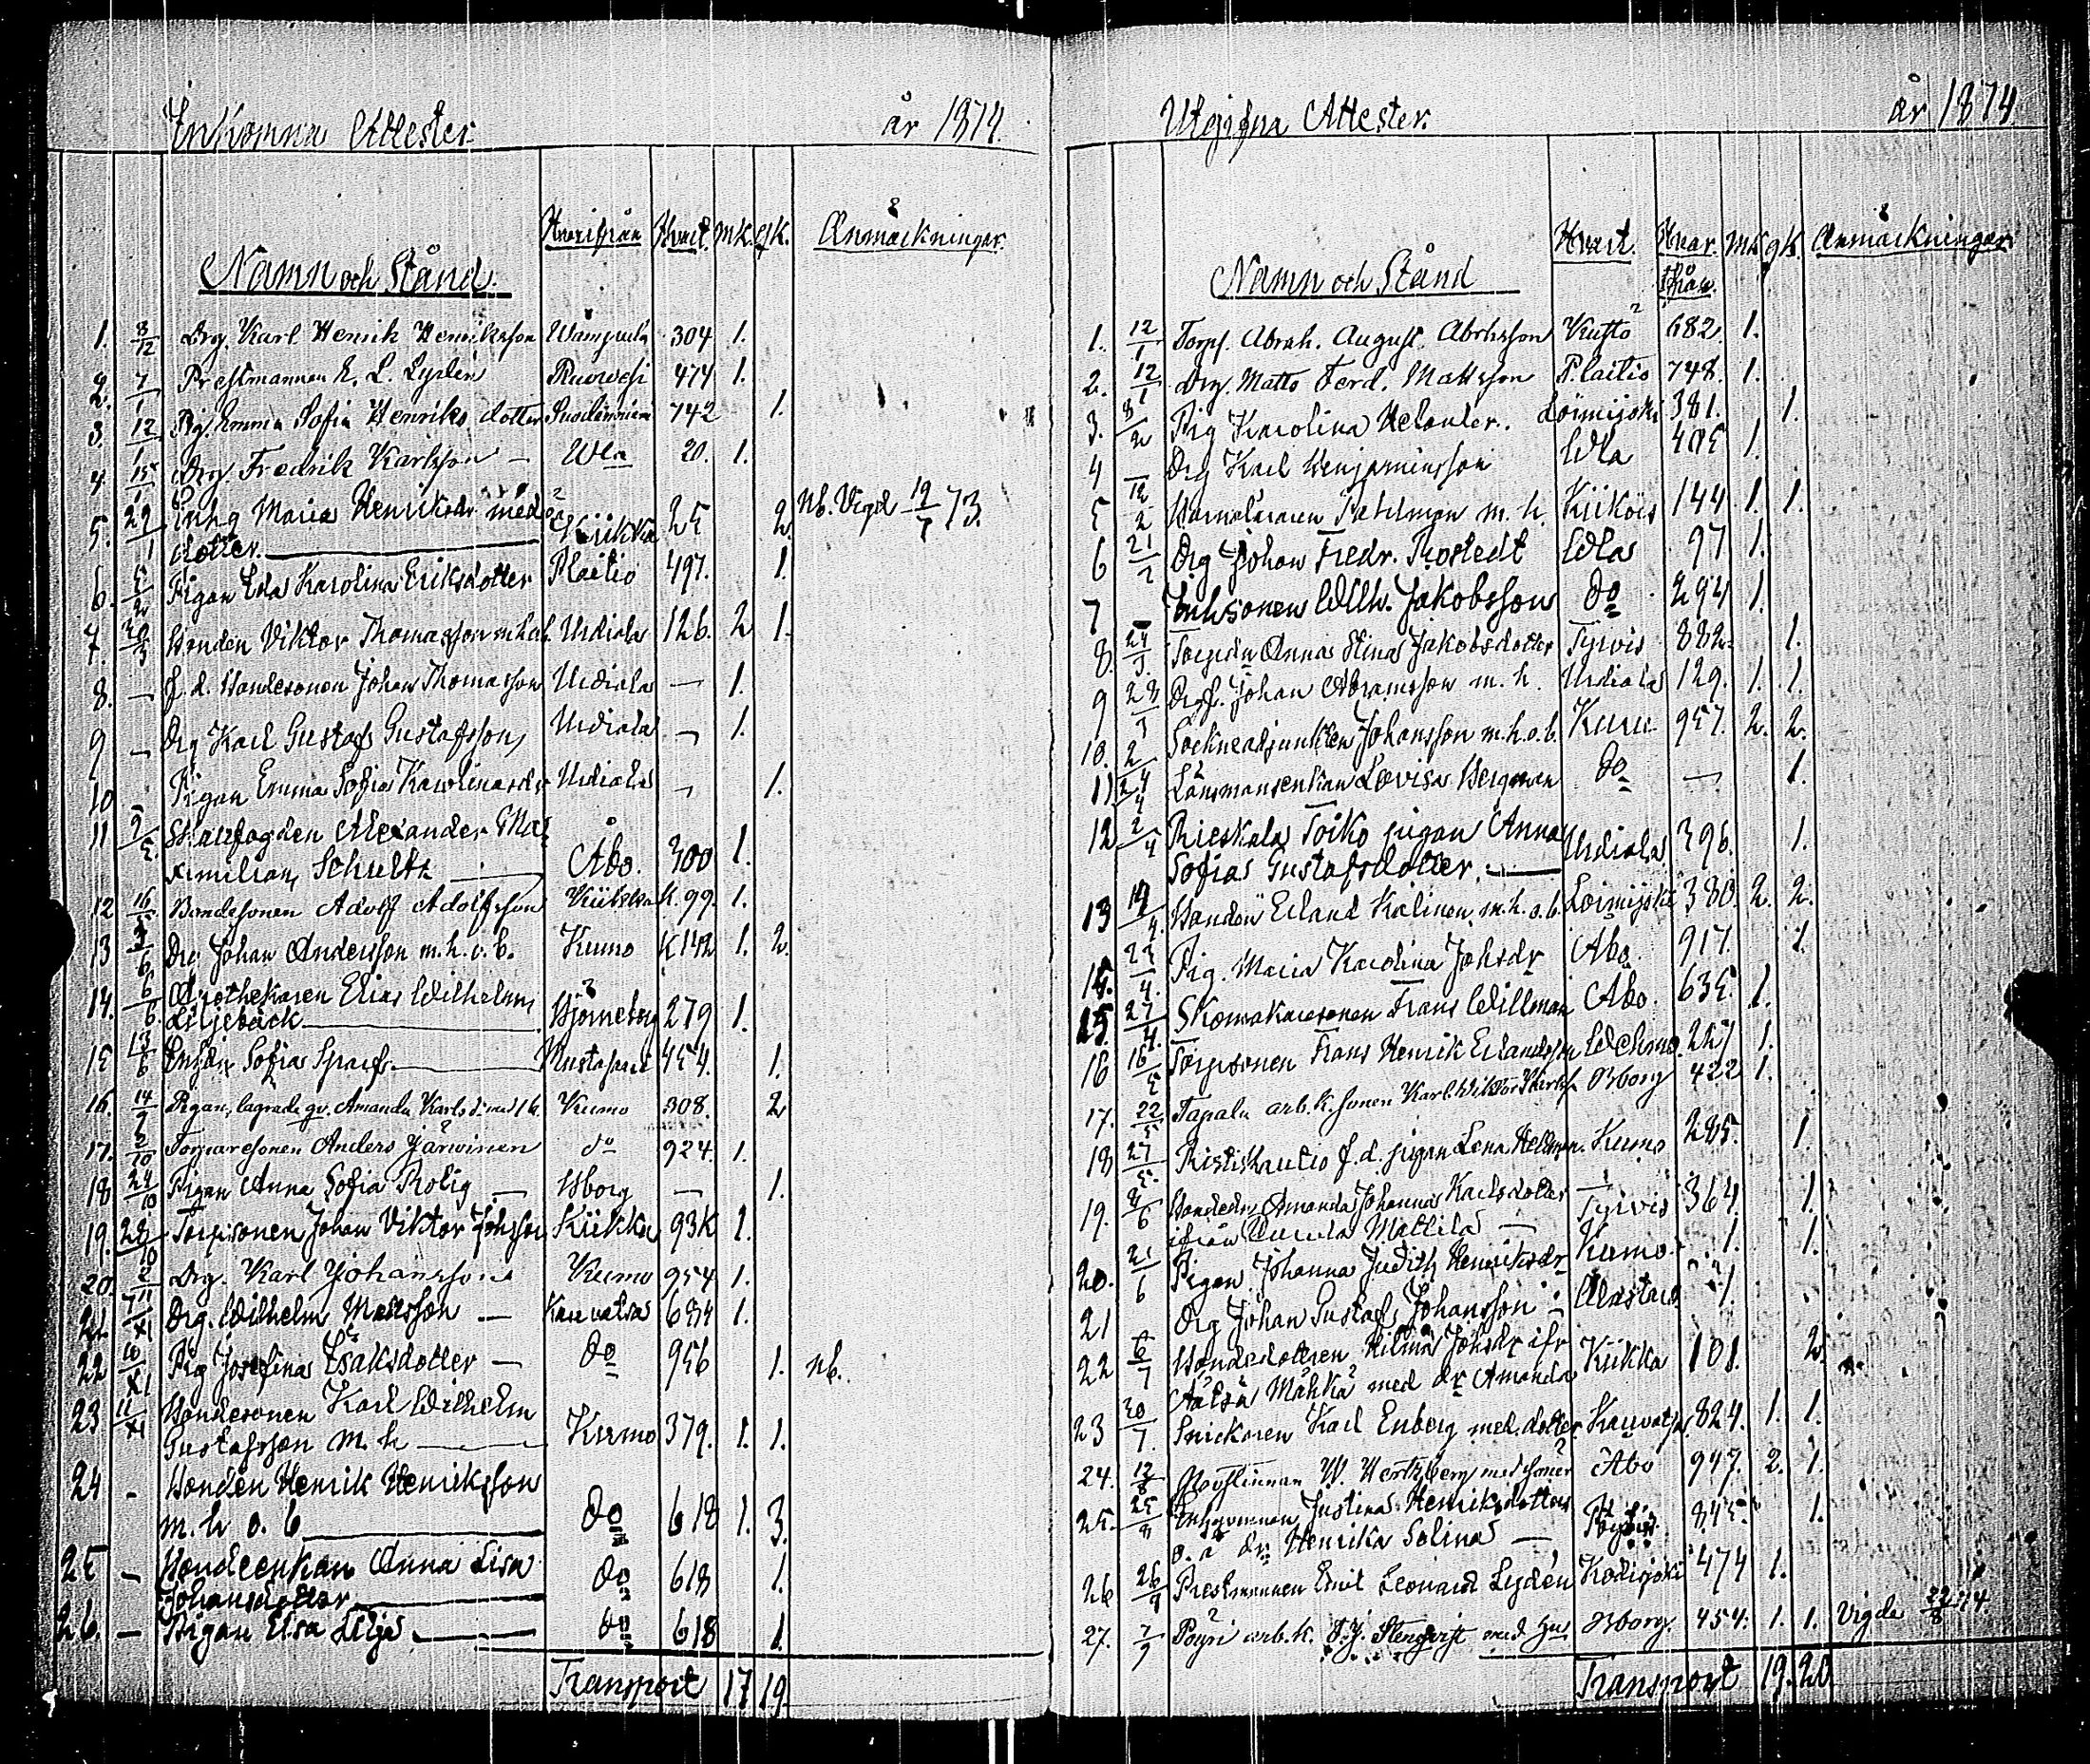 Inkomna Attester. år 1874.
Namn och Stånd. Hvarifrån Hvart. mk. qk. Anmärkningar.
1. 8/12 Drg. Karl Henrik Henriksson Wampula 304 1.
2. 7/1 Prestmannen E. L. Lydén Ruovesi 474 1.
3. 12/1 Pig. Emma Sofia Henriksdotter Suodenniemi 742 1.
4. 15/1 Drg. Fredrik Karlsson — Ulvila 20. 1.
5. 29/1 Inhg Maria Henriksdr med
dotter. — Kiikka 25 2. Nb. Vigd 19/7 73.
6. 5/2 Pigan Eva Karolina Eriksdotter P.laitio 497. 1.
7. 20/3 Bonden Viktor Thomasson m.h.o.b. Urdiala 126. 2 1.
8. — f. d. Bondesonen Johan Thomasson Urdiala — 1.
9 — Drg Karl Gustaf Gustafsson Urdiala — 1.
10 — Pigan Emma Sofia Karolinasdr Urdiala — 1.
11 2/5. Skallfogden Alexander Ma-
ximilian Schultz — Åbo. 300 1.
12 16/5 Bondesonen Adolf Adolfsson Kiikka K. 99. 1.
13 3/6 Drg Johan Andersson m. h. o. b. Kumo K 142 1. 2.
14. 6/6. Apothekaren Elias Wilhelm
Liljebäck — Björneborg 279 1.
15 13/6 Enkan Sofia Sparf. — Kustafva 454. 1.
16. 14/9 Pigan, lagrade qv. Amanda Karlsd. med 1 b. Kumo 308. 2
17. 5/10 Torparesonen Anders Järvinen do 924. 1.
18 24/10 Pigan Anna Sofia Rolig — Bborg — 1.
19. 28/10 Torpsonen Johan Viktor Johsson Kiikka 93K 1.
20. 2/11 Drg. Karl Johansson Kumo 954 1.
21 7/XI Drg. Wilhelm Mattsson — Kauvatsa 684 1.
22 10/XI Pig Josefina Isaksdotter — do 956 1. Nb.
23 11/XI Bondesonen Karl Wilhelm
Gustafsson m. h — Kumo 379. 1. 1.
24 - Bonden Henrik Henriksson
m. h o. b — do 618 1. 3.
25 — Bondeenkan Anna Lisa
Johansdotter — do 618 1.
26. — Pigan Elsa Lilja. — do 618 1.
Transport 17 19.
Utgifna Attester. år 1874
Namn och Stånd Hvart. Hvar-ifrån. mk qk. Anmärkningar
1. 12/1 Torps. Abrah. August. Abrhsson Kusto 682. 1.
2. 12/1 Drg. Matts Ferd. Mattsson P.laitio 748. 1.
3. 8/2 Pig Karolina Helander. Loimijoki 381. 1.
4 — Drg Karl Benjaminsson Ulvila 405 1.
5 12/2 Barnaläraren Pahlman m. h. Kiikois 144. 1. 1.
6 21/2 Drg Johan Fredr. Rostedt Ulvila 97 1.
7 — Enksonen Wilh. Jakobsson do 294 1.
8. 24/3 Torpdr Anna Stina Jakobsdotter Tyrvis 882. 1.
9 28/3 Drg. Johan Abramsson m. h. Urdiala 129. 1. 1.
10. 2 Sockneadjunkten Johansson m. h. o. b. Kuru 957. 2. 2.
11 24/4 Länsmansenkan Lovisa Bergman do — 1.
12 2/4 Rieskala Toiko pigan Anna
Sofia Gustafsdotter. — Urdiala 396. 1.
13 14/4. Bonden Erland Kälinen m. h. o. b. Loimijoki 380. 2. 2.
14. 23/4. Pig. Maria Karolina Johsdr Åbo 917. 1
15 27/4. Skomakaresonen Frans Willman Åbo. 635. 1.
16 16/5 Torpsonen Frans Henrik Erlandsson Wehmo. 227 1.
17. 22/5 Tapala arb.k.sonen Karl Viktor Bborg 422 1.
18 27/5. Ristiskautio f. d. pigan Lena Hellman Kumo 285. 1.
19. 4/6 Bondedr Amanda Johanna Karlsdotter
ifrån Mattila — Tyrvis 364. 1.
20. 21/6 Pigan Johanna Judith Henriksdr Kumo 1.
21 Drg Johan Gustaf Johansson Alastaro 1.
22 6/7 Bondedottren Hilma Johsdr ifr
Aätsä Mähkä med dr Amanda Kiikka 101. 2.
23 20/7. Snickaren Karl Enberg med dotter Kauvatsa 824. 1. 1.
24. 12/8 W. Hertzberg med soner Åbo 947. 2. 1.
25. 25/8 Inhqvinnan Justina Henriksdotter
o. ä dr Henrika Selina — 845. 1.
26 26/9 Prestmannen Emil Leonard Lydén Kodisjoki 474 1.
27. 7/9 Pöyri arb.k. F. J. Stenqvist med hu Bborg. 454. 1. 1. Vigde 22/8 74.
Transport 19. 20.